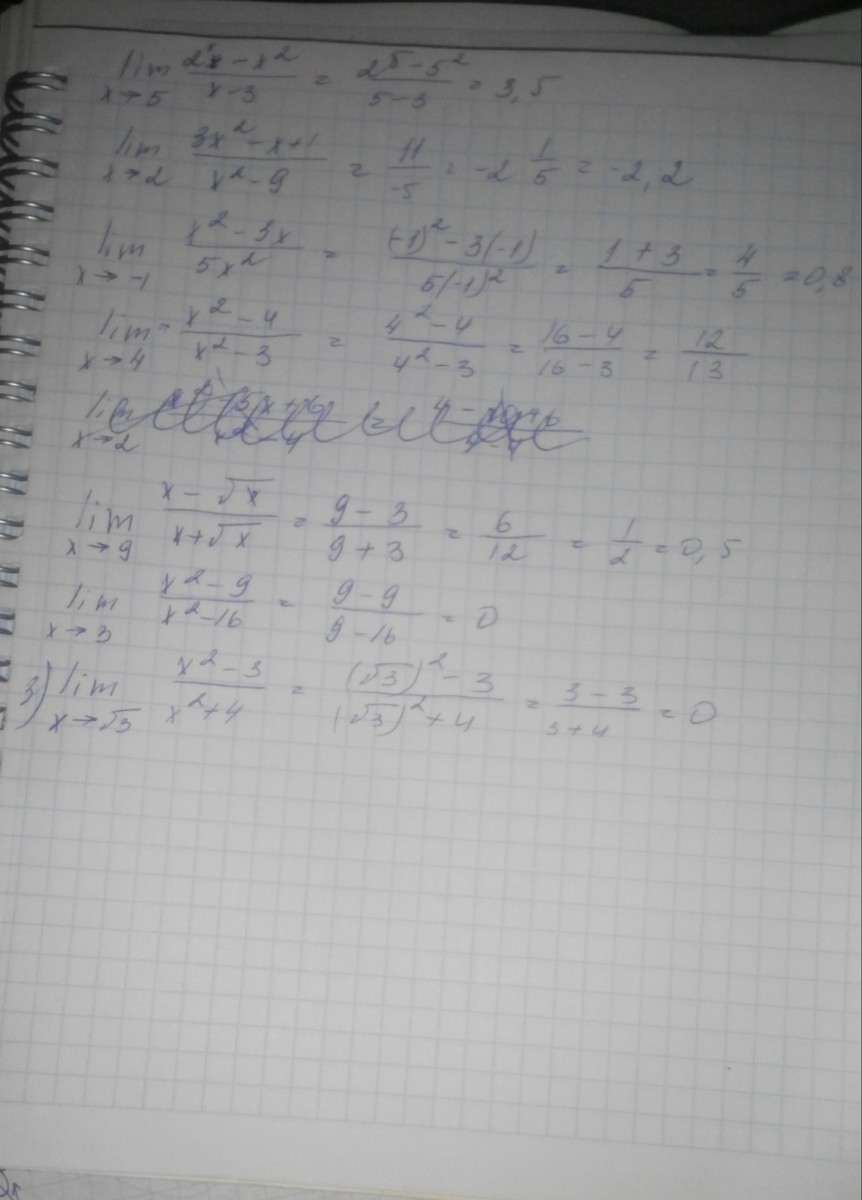 lim x→5 (2^x - x^2)/(x-3) = (2^5 - 5^2)/(5-3) = 3,5
lim x→2 (3x^2 - x+1)/(x^2-9) = 11/-5 = -2 1/5 = -2,2
lim x→-1 (x^2 - 3x)/(5x^2) = ((-1)^2 - 3(-1))/(5(-1)^2) = (1+3)/5 = 4/5 = 0,8
lim x→4 (x^2 - 4)/(x^2 - 3) = (4^2 - 4)/(4^2 - 3) = (16-4)/(16-3) = 12/13
lim x→2
lim x→9 (x - √x)/(x+√x) = (9-3)/(9+3) = 6/12 = 1/2 = 0,5
lim x→3 (x^2 - 9)/(x^2-16) = (9-9)/(9-16) = 0
3) lim x→√3 (x^2 - 3)/(x^2+4) = ((√3)^2 - 3)/((√3)^2 + 4) = (3-3)/(3+4) = 0